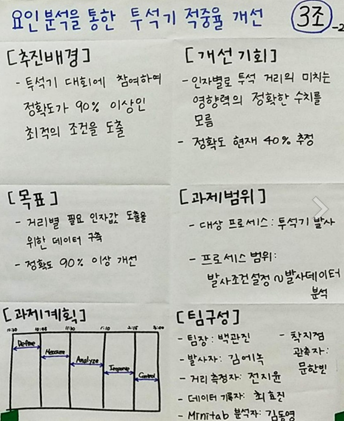 요인 분석을 통한 투석기 적중율 개선
3조
[추진배경]
- 투석기 대회에 참여하여
정확도가 90% 이상인
최적의 조건을 도출
[개선기회]
- 인자별로 투석 거리의 미치는
영향력의 정확한 수치를
모름
- 정확도 현재 40% 추정
[목표]
- 거리별 필요 인자값 도출을
위한 데이터 구축
- 정확도 90% 이상 개선
[과제범위]
- 대상 프로세스: 투석기 발사
- 프로세스 범위:
발사조건설정 ~ 발사데이터
분석
[과제계획]
Define
Measure
Analyze
Improve
Control
[팀구성]
- 팀장: 백관진
- 발사자:
- 거리 측정자: 전지윤
- 데이터 기록자: 최효진
- Minitab 분석자: 김동영
- 착지점
관측자:
문한빈